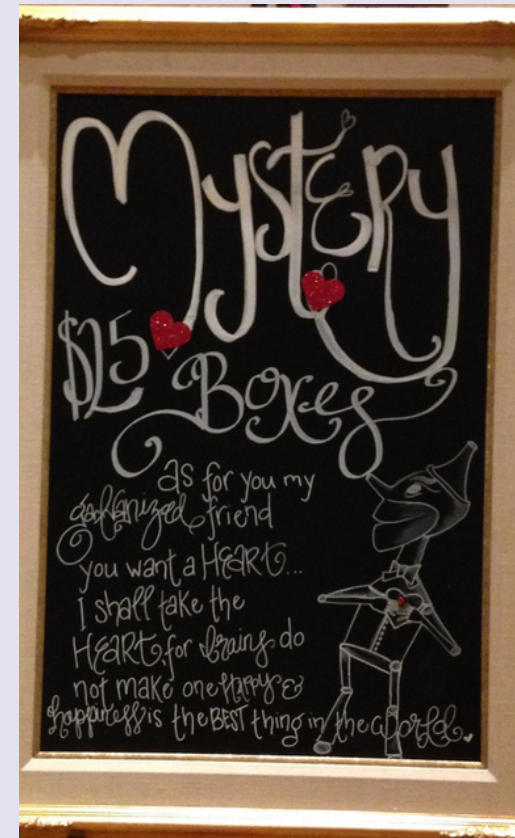 Mystery
$25
Boxes
as for you my
galvanized friend
you want a HEART...
I shall take the
HEART, for brains do
not make one happy &
happiness is the BEST thing in the world.